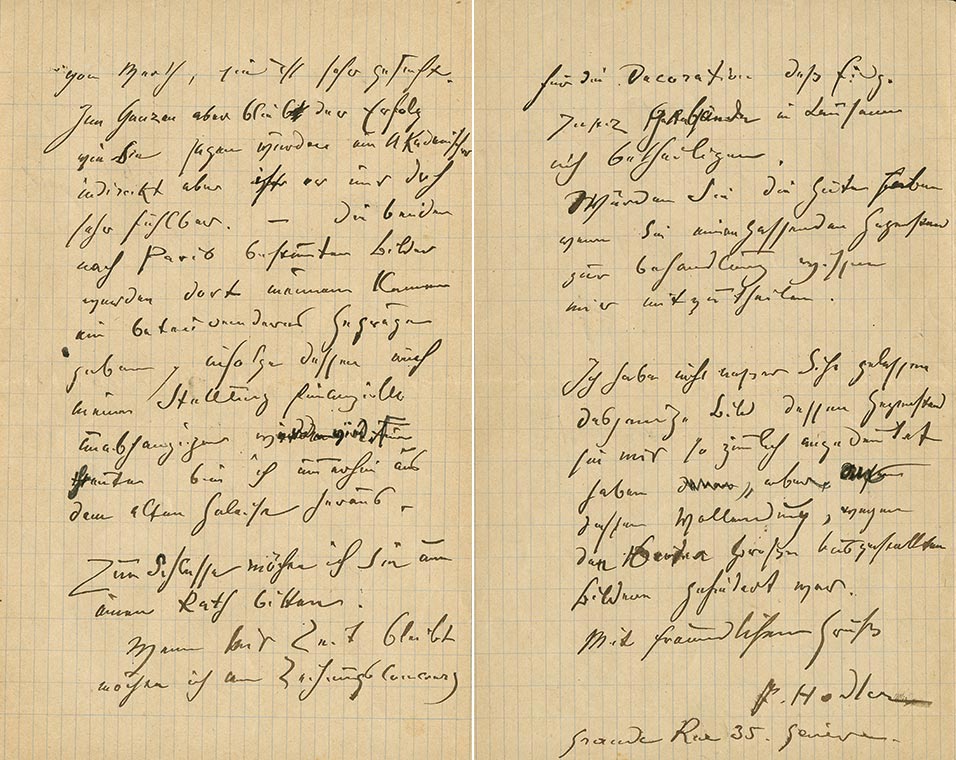 von Werth, sie ist sehr gesucht.
Im Ganzen aber bleibt der Erfolg
wie Sie sagen würden ein Akademischer
indirekt aber ist er mir doch
sehr fühlbar. — die beiden
nach Paris bestimten Bilder
werden dort meinem Namen
ein
geben, infolge dessen auch
meine Stellung finanziell
unabhängiger
bin ich immerhin aus
dem alten Geleise heraus.
Zum Schlusse möchte ich Sie um
einen Rath bitten:
Wenn mir Zeit bleibt
möchte ich am Zeichungsconcurs
für die Decoration des Eidg.
Justiz Gebäude in Lausanne
mich betheiligen.
Würden Sie die Güte haben
wenn Sie einen passenden Gegenstand
zur Behandlung wissen
mir mitzutheilen.
Ich habe nicht ausser Sicht gelassen
dasjenige Bild dessen Gegenstand
Sie mir so ziemlich angedeutet
haben, aber an
dessen Vollendung, wegen
den grossen ausgestellten
Bildern gehindert war.
Mit freundlichem Gruss
F. Hodler
Grande Rue 35. Genève.